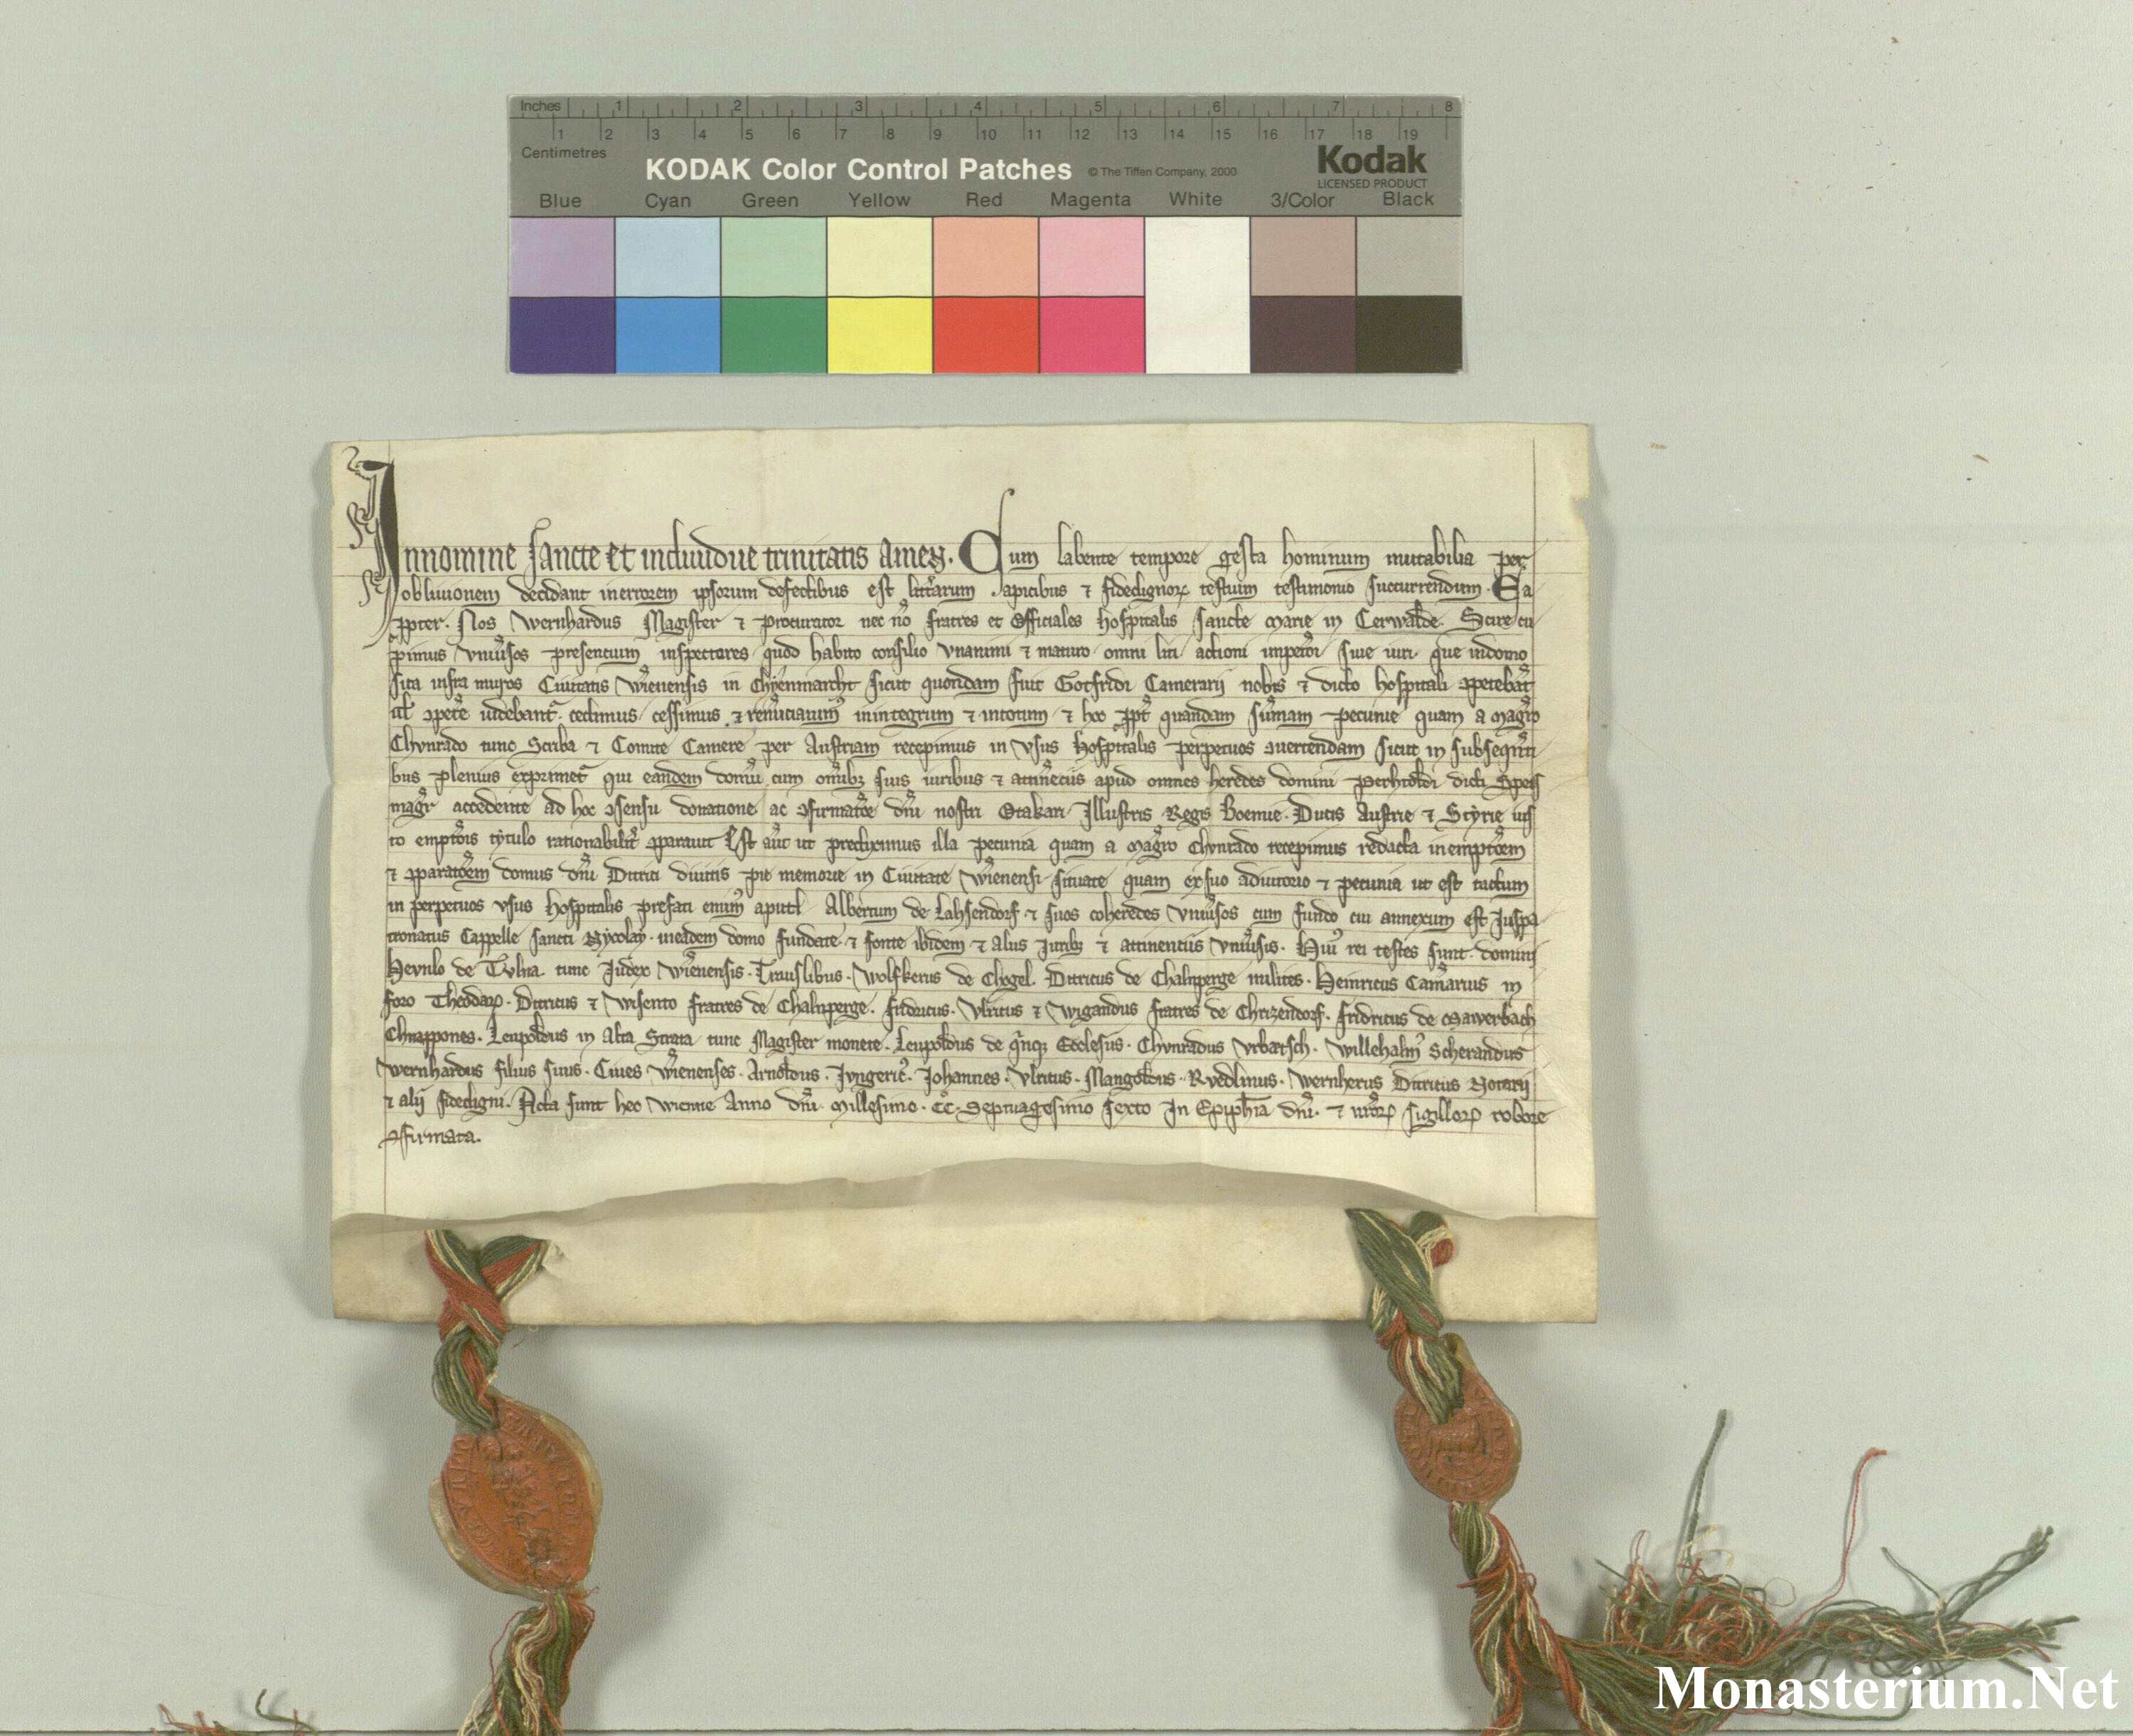 Inches 1 2 3 4 5 6 7 8
1 2 3 4 5 6 7 8 9 10 11 12 13 14 15 16 17 18 19
Centimetres
KODAK Color Control Patches © The Tiffen Company, 2000 Kodak
LICENSED PRODUCT
Blue Cyan Green Yellow Red Magenta White 3/Color Black
Innomine sancte et indiuidue trinitatis Amen. Cum labente tempore gesta hominum mutabilia per
obliuionem decidant inerrorem ipsorum defectibus est litt̾arum apicibus ⁊ fidedignoꝝ testium testimonio succurrendum. Ea
ꝓpter. Nos Wernhardus Magister ⁊ procurator nec nō fratres et Officiales hospitalis sancte marie in Cerwalde. Scire cu
pimus vniu̾sos presencium inspectores quod habito consilio vnanimi ⁊ maturo omni liti actioni siue iuri que indomo
sita infra muros Ciuitatis Wīenensis in Chyenmarcht sicut quondam fuit Gotfridi Camerarij nobis ⁊ dicto hospitali ꝯpetebāt
ul̄ ꝯpete᷒ uidebant᷒ cedimus cessimus ⁊ inintegrum ⁊ intotum ⁊ hoc ꝓpt̾ quandam sūmam pecunie quam a magr̄o
Chvnrado tunc Scriba ⁊ Comite Camere per Austriam recepimus in vsus hospitalis perpetuos ꝯuertendam sicut in subseqn̄ti
bus plenius exprimet᷒ qui eandem domū cum omībꝫ suis iuribus ⁊ apud omnes heredes domini dicti
magr̄ accedente ad hoc ꝯsensu donatione ac dn̄i nostri Otakari Illustris Regis Boemie. Ducis Austrie ⁊ Styrie
to tytulo rationabilit̾ ꝯparauit Est aut̄ ut illa pecunia quam a magr̄o Chvnrado recepimus redacta
⁊ domus dn̄i Ditrici diuitis pie memorie in Ciuitate Wīenensi situate quam exsuo adiutorio ⁊ pecunia ut est tactum
in perpetuos vsus hospitalis prefati aput Albertum de Lahsendorf ⁊ suos coheredes vniu̾sos cum fundo cui annexum est Juspa
tronatus Cappelle sancti Nycolay ineadem domo fundate ⁊ fonte ibidem ⁊ alijs Juribꝫ ⁊ attinentiis vniu̾sis. rei testes sunt domini
de Tvlna tunc Judex Wīenensis. Wolfkerus de Ditricus de Chalnperge milites. Heinricus in
foro Ditricus ⁊ fratres de Chalnperge. fridricus. Vlricus ⁊ Wigandus fratres de Chrizendorf. fridricus de Mawerbach
Leupoldus in Alta Strata tunc Magister monete. Leupoldus de Ecclesijs. Chvnradus Willehalm᷒ Scherandus
Wernhardus filius suus. Ciues Wīenenses. Arnoldus. Johannes. Vlricus. Mangoldus. Rvedlinus. Wernherus Ditricus Notarij
⁊ alij fidedigni. Acta sunt hec Wienne Anno dn̄i. Millesimo. CC. Septuagesimo sexto In Epiphīa dn̄i. ⁊ nr̄oꝝ sigilloꝝ robore
ꝯfirmata.
Monasterium.Net